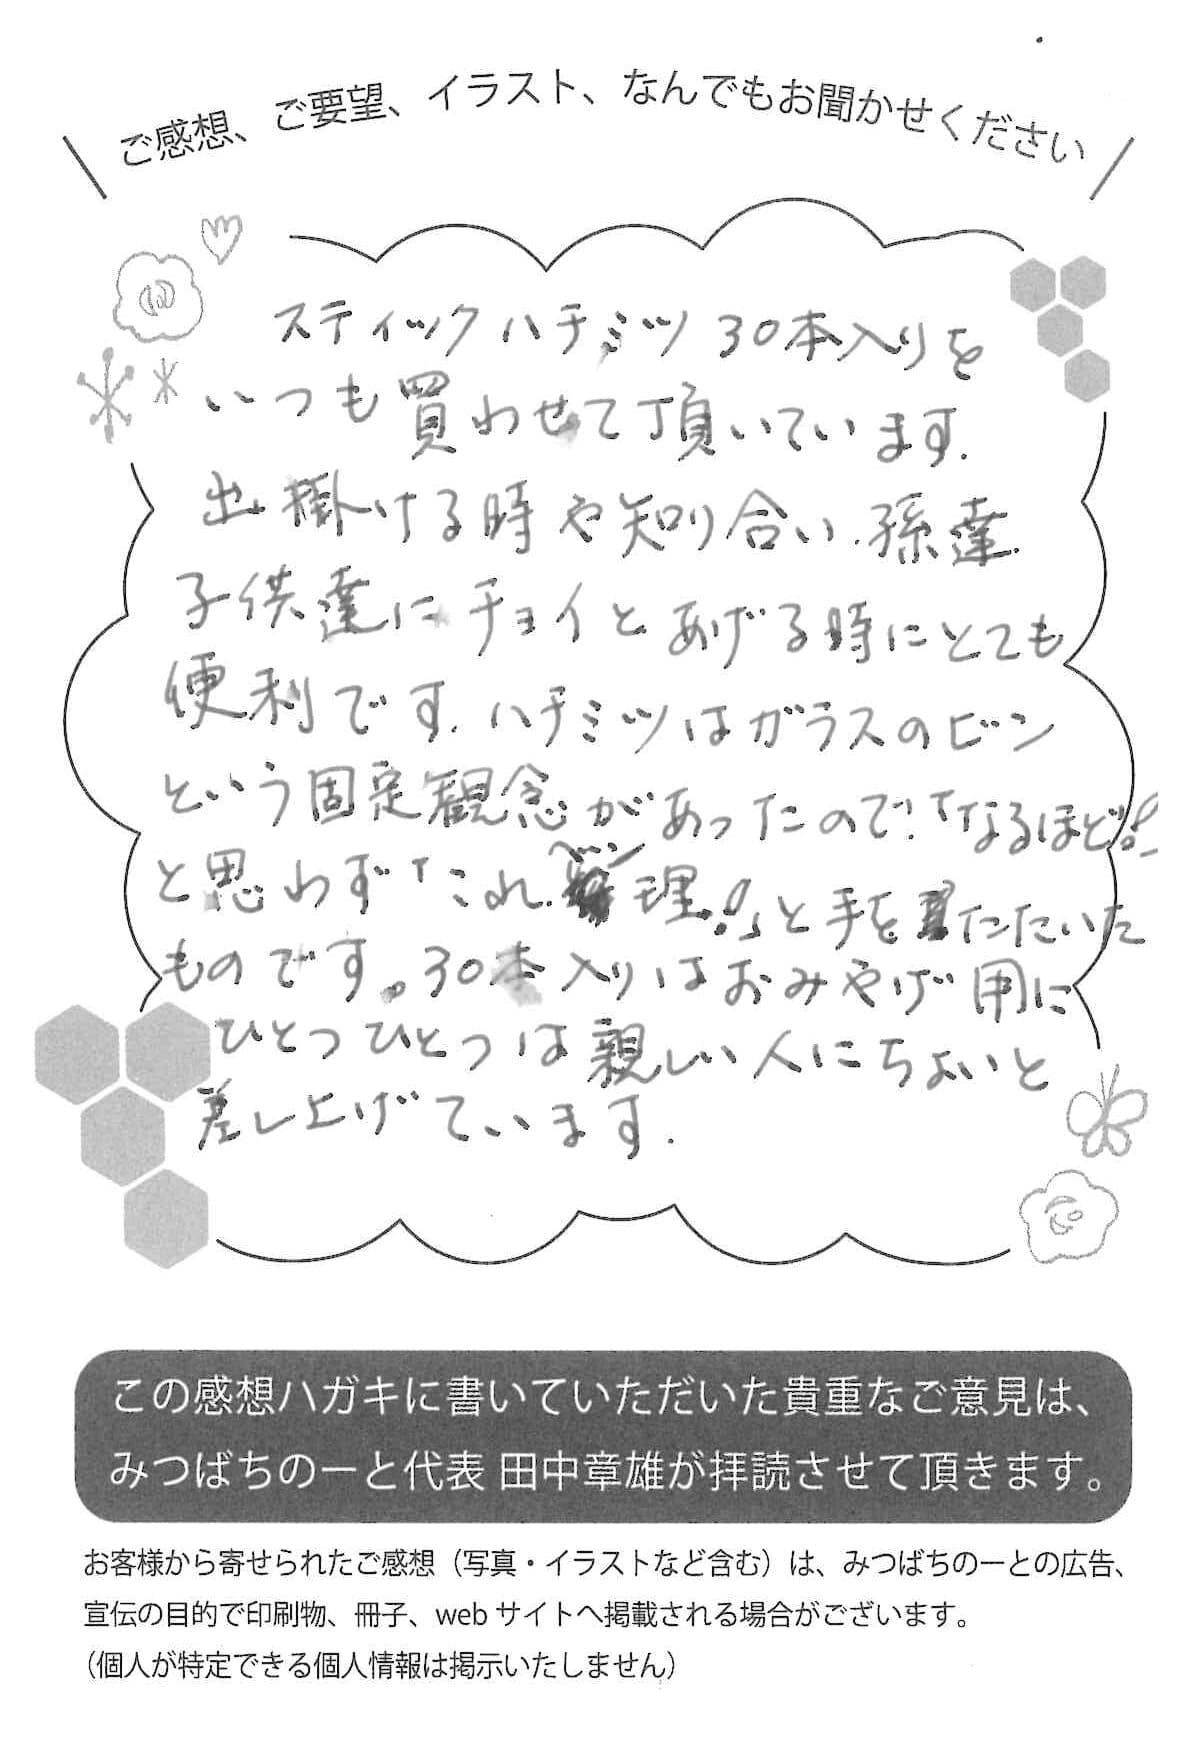 ご感想、ご要望、イラスト、なんでもお聞かせください
スティックハチミツ30本入りを
いつも買わせて頂いています.
出掛ける時や知り合い.孫達.
子供達にチョイとあげる時にとても
便利です.ハチミツはガラスのビン
という固定観念があったので!「なるほど!
と思わず「これ
ベン
理!」と手をたたいた
ものです。30本入りはおみやげ用に
ひとつひとつは親しい人にちょいと
差し上げています.
この感想ハガキに書いていただいた貴重なご意見は、
みつばちのーと代表 田中章雄が拝読させて頂きます。
お客様から寄せられたご感想（写真・イラストなど含む）は、みつばちのーとの広告、
宣伝の目的で印刷物、冊子、webサイトへ掲載される場合がございます。
（個人が特定できる個人情報は掲示いたしません）